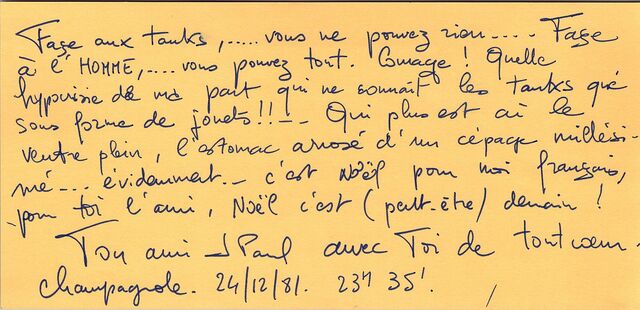 Face aux tanks,..... vous ne pouvez rien.... Face
à l'HOMME,.... vous pouvez tout. Courage ! Quelle
hypocrisie de ma part qui ne connait les tanks que
sous forme de jouets!!... Qui plus est ai le
ventre plein, l'estomac arrosé d'un cépage millési-
mé.... évidemment... c'est Noël pour moi français,
pour toi l'ami, Noël c'est (peut-être) demain !
Ton ami J Paul avec Toi de tout cœur.
Champagnole. 24/12/81. 23H 35'.